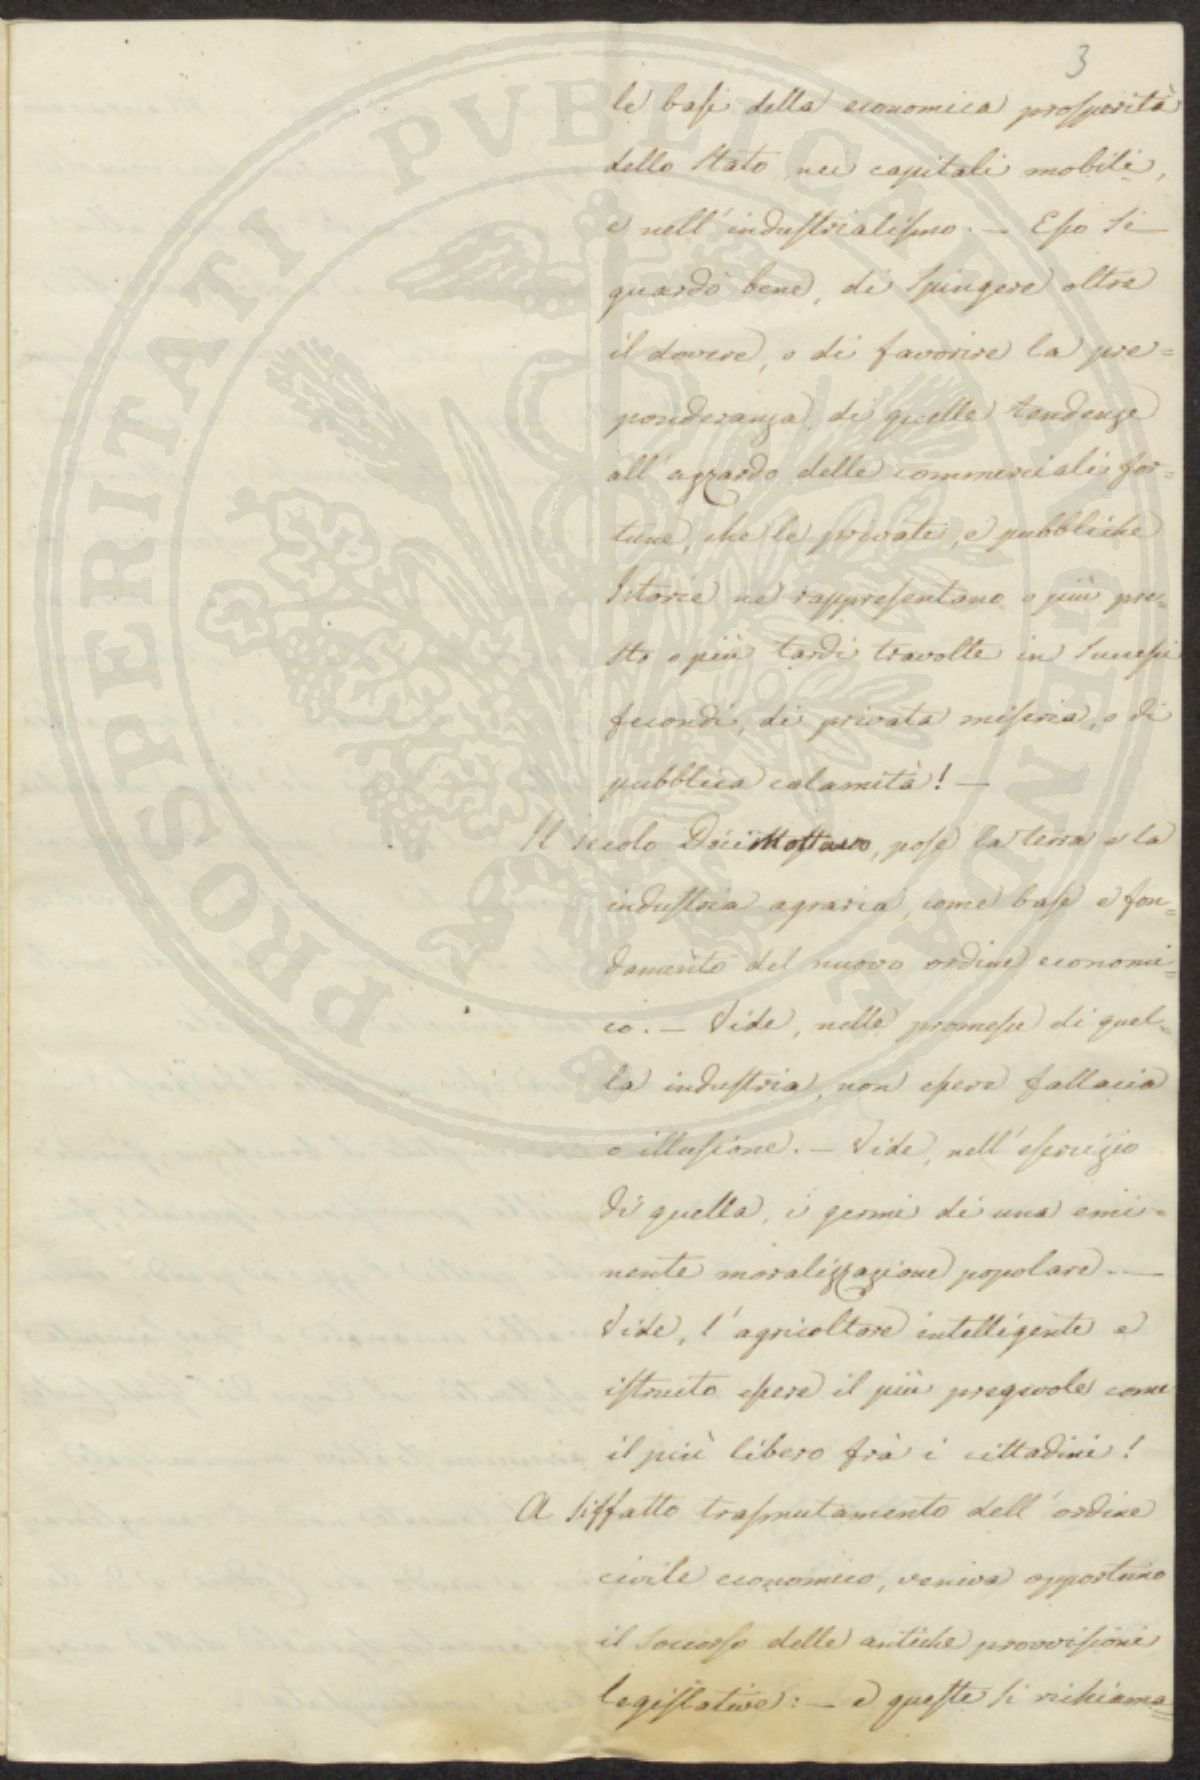 3
le basi della economica prosperità
dello Stato nei capitali mobili,
e nell'industrialismo. — Esso si
guardò bene, di spingere oltre
il dovere, o di favorire la pre=
ponderanza di quelle tendenze
all'azzardo delle commerciali for=
tune, che le private, e pubbliche
Istorie ne rappresentano o più pre=
sto o più tardi travolte in successi
fecondi, di privata miseria, o di
pubblica calamità! —
Il secolo Decimottavo, pose la terra e la
industria agraria, come base e fon=
damento del nuovo ordine economi=
co. — Vide, nelle promesse di quel=
la industria, non essere fallacia
o illusione. — Vide, nell'esercizio
di quella, i germi di una emi=
nente moralizzazione popolare. —
Vide, l'agricoltore intelligente e
istruito essere il più pregevole come
il più libero frà i cittadini!
A siffatto trasmutamento dell'ordine
civile economico, veniva opportuno
il soccorso delle antiche provvisioni
legislative: — e queste si richiama=
PROSPERITATI PUBLICAE AUGENDAE